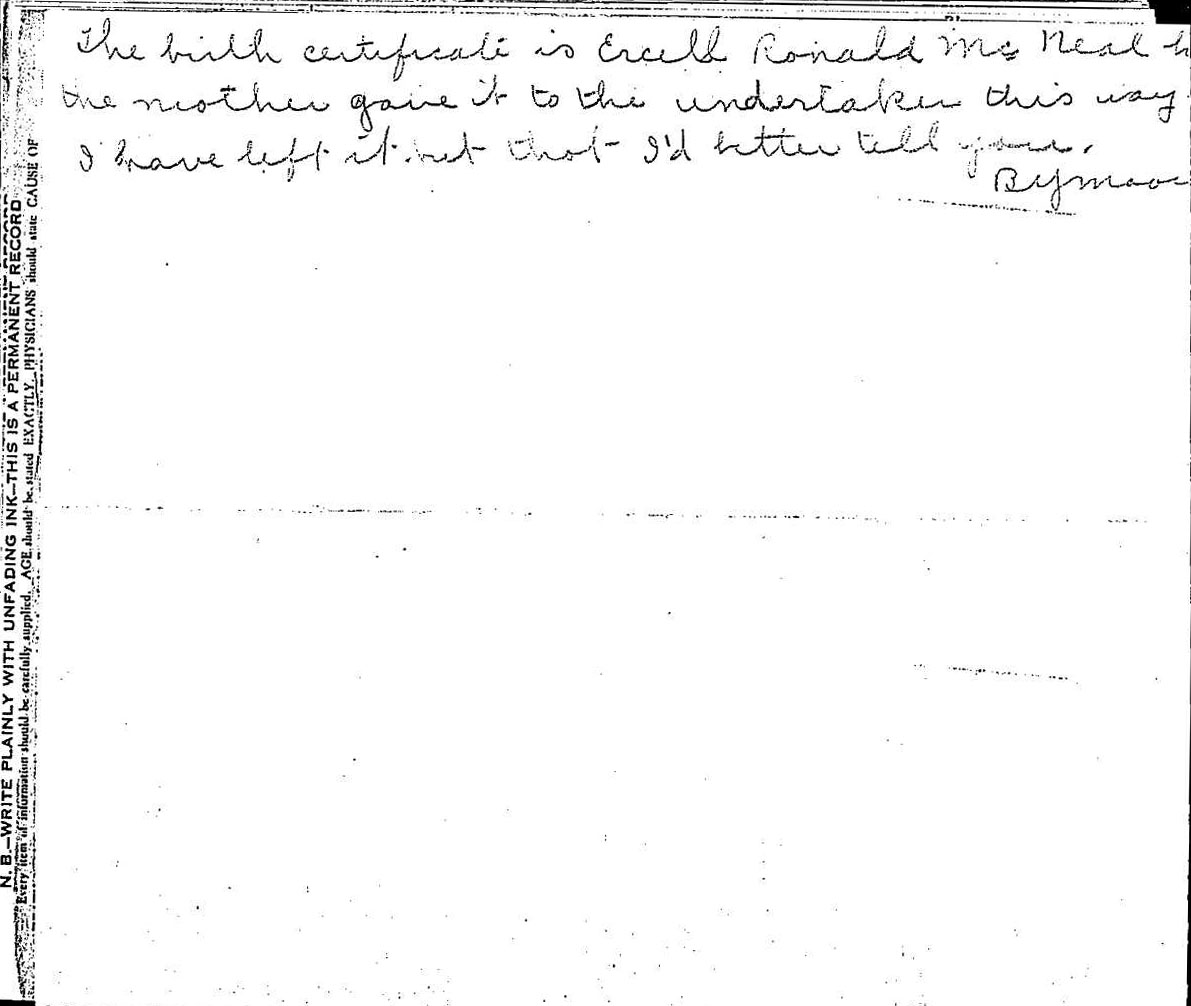 The birth certificate is Ercell Ronald Mc Neal
the mother gave it to the undertaker this way
I have left it but that I'd better tell you.
N. B.—WRITE PLAINLY WITH UNFADING INK—THIS IS A PERMANENT RECORD
Every item of information should be carefully supplied. AGE should be stated EXACTLY. PHYSICIANS should state CAUSE OF